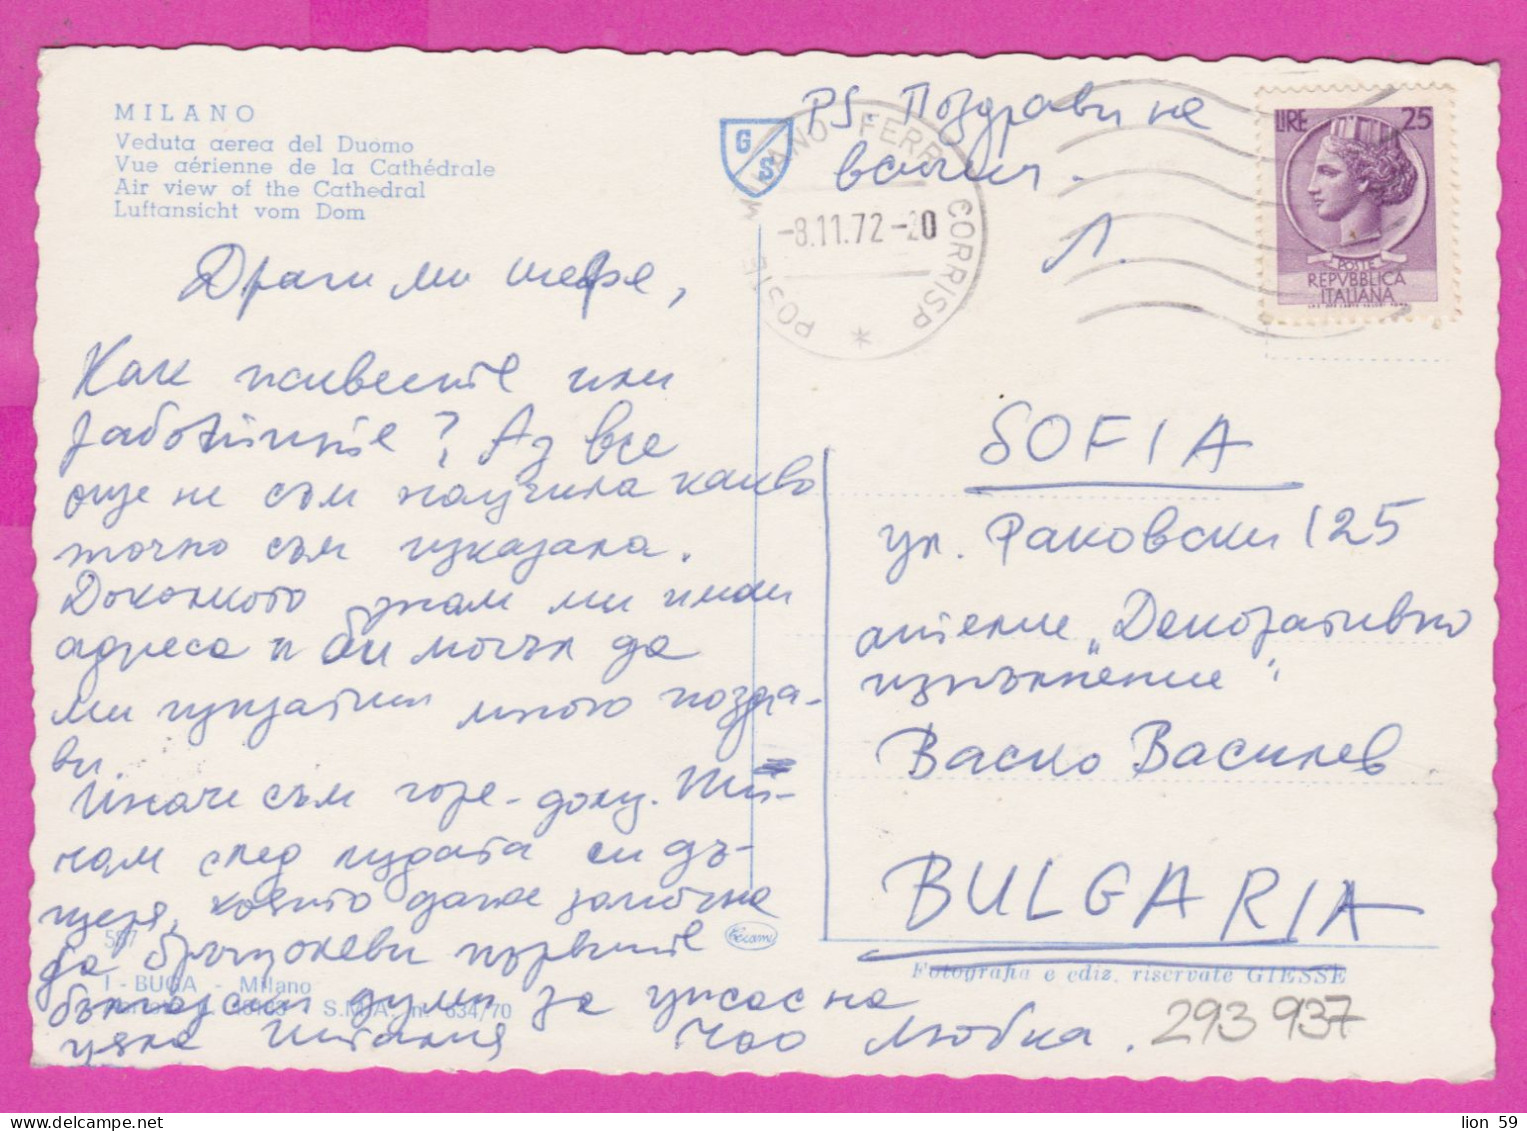 MILANO
Veduta aerea del Duomo
Vue aérienne de la Cathédrale
Air view of the Cathedral
Luftansicht vom Dom
GS
PS. Поздрави на
всички.
Л.
POSTE MILANO FERR CORRISP
-8.11.72-20
LIRE 25
POSTE
REPVBBLICA
ITALIANA
Драги ми шефе,
Как живеете или
работите? Аз все
още не съм научила какво
точно съм изказала.
Доколкото знам ми имаш
адреса и би могъл да
ми изпратиш много поздра-
ви.
Иначе съм горе-долу. Ти-
чам след лудата си дъ-
щеря, която даже започна
да бръщолеви първите
български думи за ужас на
цяла Италия Чао Любка.
SOFIA
ул. Раковски 125
ателие „Декоративно
изпълнение"
Васко Василев
BULGARIA
587
I - BUGA - Milano
S.M.A. n. 634/70
Cecami
Fotografia e ediz. riservate GIESSE
293 937
lion 59